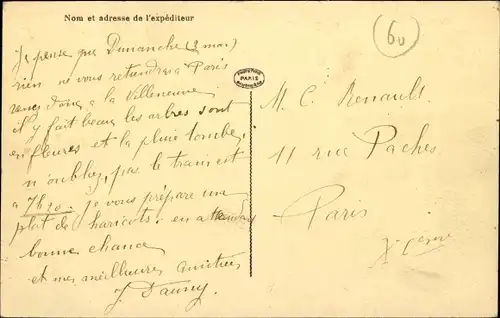 Nom et adresse de l'expéditeur
60
Je pense que Dimanche (2 mai)
rien ne vous retiendra à Paris
venez donc a la Villeneuve
il y fait beau les arbres sont
en fleures et la pluie tombe,
n'oubliez pas le train est
a 7h20. je vous prépare une
plat de haricots. en attendant
bonne chance
et mes meilleures amitiés
J. Dauny.
PARIS
M. C. Renault.
11 rue Paches
Paris